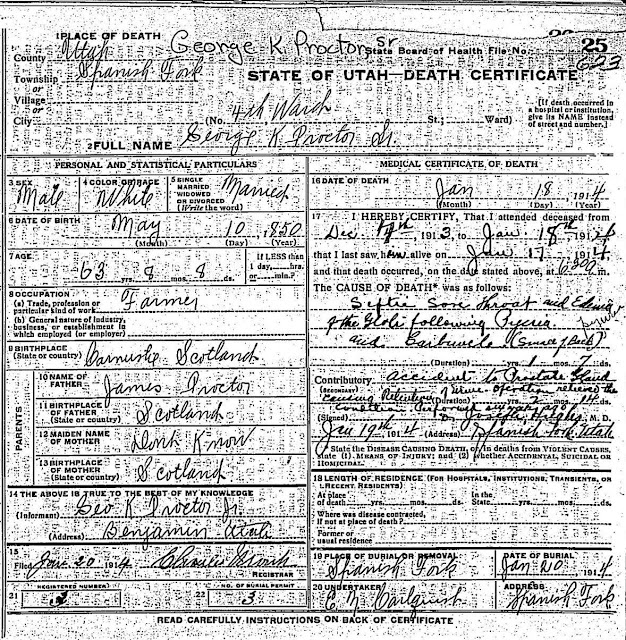 1 PLACE OF DEATH
George K. Proctor, Sr
State Board of Health File No.
25
623
County Utah
Township Spanish Fork
or
Village
or
City
STATE OF UTAH—DEATH CERTIFICATE
(No. 4th Ward St.; Ward)
[If death occurred in a hospital or institution, give its NAME instead of street and number.]
2 FULL NAME George K Proctor Sr.
PERSONAL AND STATISTICAL PARTICULARS
3 SEX Male
4 COLOR OR RACE White
5 SINGLE MARRIED WIDOWED OR DIVORCED (Write the word) Married
6 DATE OF BIRTH May 10, 1850
(Month) (Day) (Year)
7 AGE 63 yrs. 8 mos. 8 ds.
If LESS than 1 day, hrs. or min.?
8 OCCUPATION
(a) Trade, profession or particular kind of work Farmer
(b) General nature of industry, business, or establishment in which employed (or employer)
9 BIRTHPLACE
(State or country) Scotland
PARENTS
10 NAME OF FATHER James Proctor
11 BIRTHPLACE OF FATHER (State or country) Scotland
12 MAIDEN NAME OF MOTHER Dont Know
13 BIRTHPLACE OF MOTHER (State or country) Scotland
14 THE ABOVE IS TRUE TO THE BEST OF MY KNOWLEDGE
(Informant) Geo K. Proctor Jr
(Address) Benjamin Utah
15
Filed Jan. 20 1914 Charles Monk
REGISTRAR
REGISTERED NUMBER
21 3
NO. OF BURIAL PERMIT
22 3
MEDICAL CERTIFICATE OF DEATH
16 DATE OF DEATH
Jan 18, 1914
(Month) (Day) (Year)
17 I HEREBY CERTIFY, That I attended deceased from
Dec. 1913, to Jan. 18th 1914
that I last saw him alive on Jan 17, 1914
and that death occurred, on the date stated above, at 630 m.
The CAUSE OF DEATH was as follows:
Septic Sore Throat and Edema
of the Glottis following Pyemia
and Carbuncle
(Duration) yrs. 1 mos. 7 ds.
Contributory accident to Prostate Gland
(SECONDARY)
(Duration) yrs. 2 mos. 14 ds.
(Signed) Joseph Hughes M. D.
Jan 19th, 1914 (Address) Spanish Fork Utah
State the DISEASE CAUSING DEATH, or, in deaths from VIOLENT CAUSES, state (1) MEANS OF INJURY; and (2) whether ACCIDENTAL, SUICIDAL OR HOMICIDAL.
18 LENGTH OF RESIDENCE (FOR HOSPITALS, INSTITUTIONS, TRANSIENTS, OR RECENT RESIDENTS).
At place of death yrs. mos. ds. In the State yrs. mos. ds.
Where was disease contracted, if not at place of death?
Former or usual residence
19 PLACE OF BURIAL OR REMOVAL Spanish Fork
DATE OF BURIAL Jan 20 1914
20 UNDERTAKER
ADDRESS Spanish Fork
READ CAREFULLY INSTRUCTIONS ON BACK OF CERTIFICATE